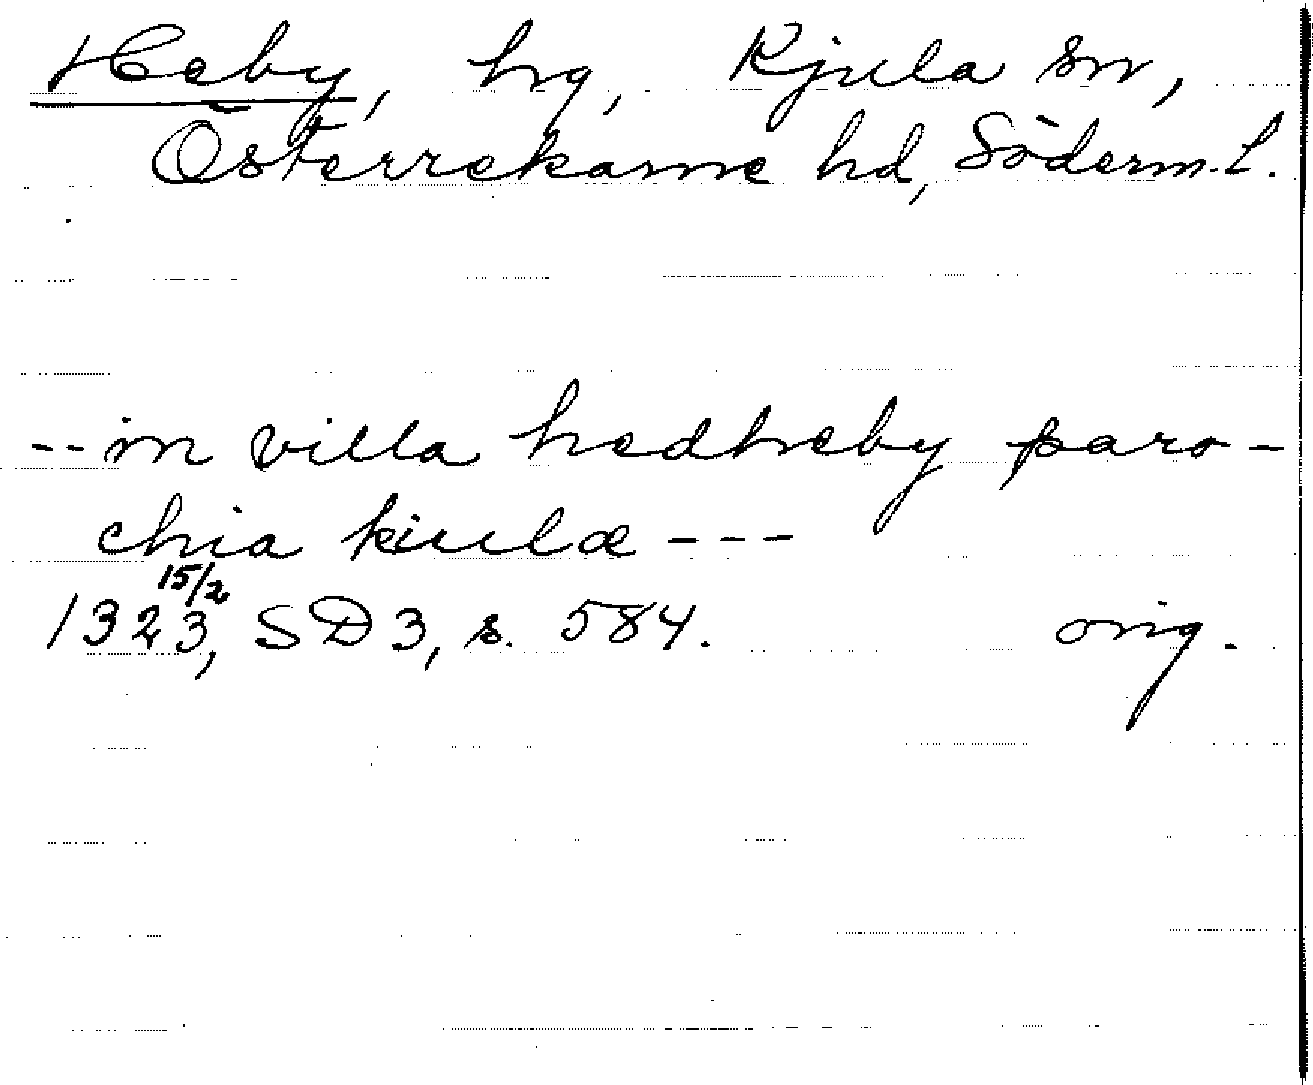 Heby, hg, Kjula sn,
Österrekarne hd, Söderm.l.
-- in villa hedheby paro-
chia kiulæ ---
1323 15/2, SD 3, s. 584. orig.